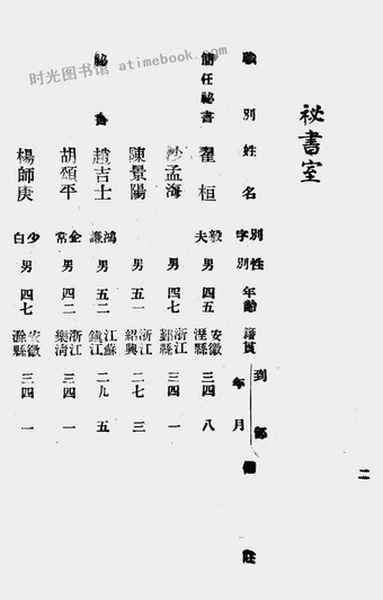 时光图书馆 atimebook.com
祕書室
職別 姓名 別字 性別 年齡 籍貫 到部年月 備註
簡任祕書 翟桓 毅夫 男 四五 安徽涇縣 三四 八
沙孟海 男 四七 浙江鄞縣 三四 一
陳景陽 男 五一 浙江紹興 二七 三
祕書 趙吉士 鴻謙 男 五二 江蘇鎮江 二九 五
胡頌平 企常 男 四二 浙江樂清 三四 一
楊師庚 少白 男 四七 安徽滁縣 三四 一
二